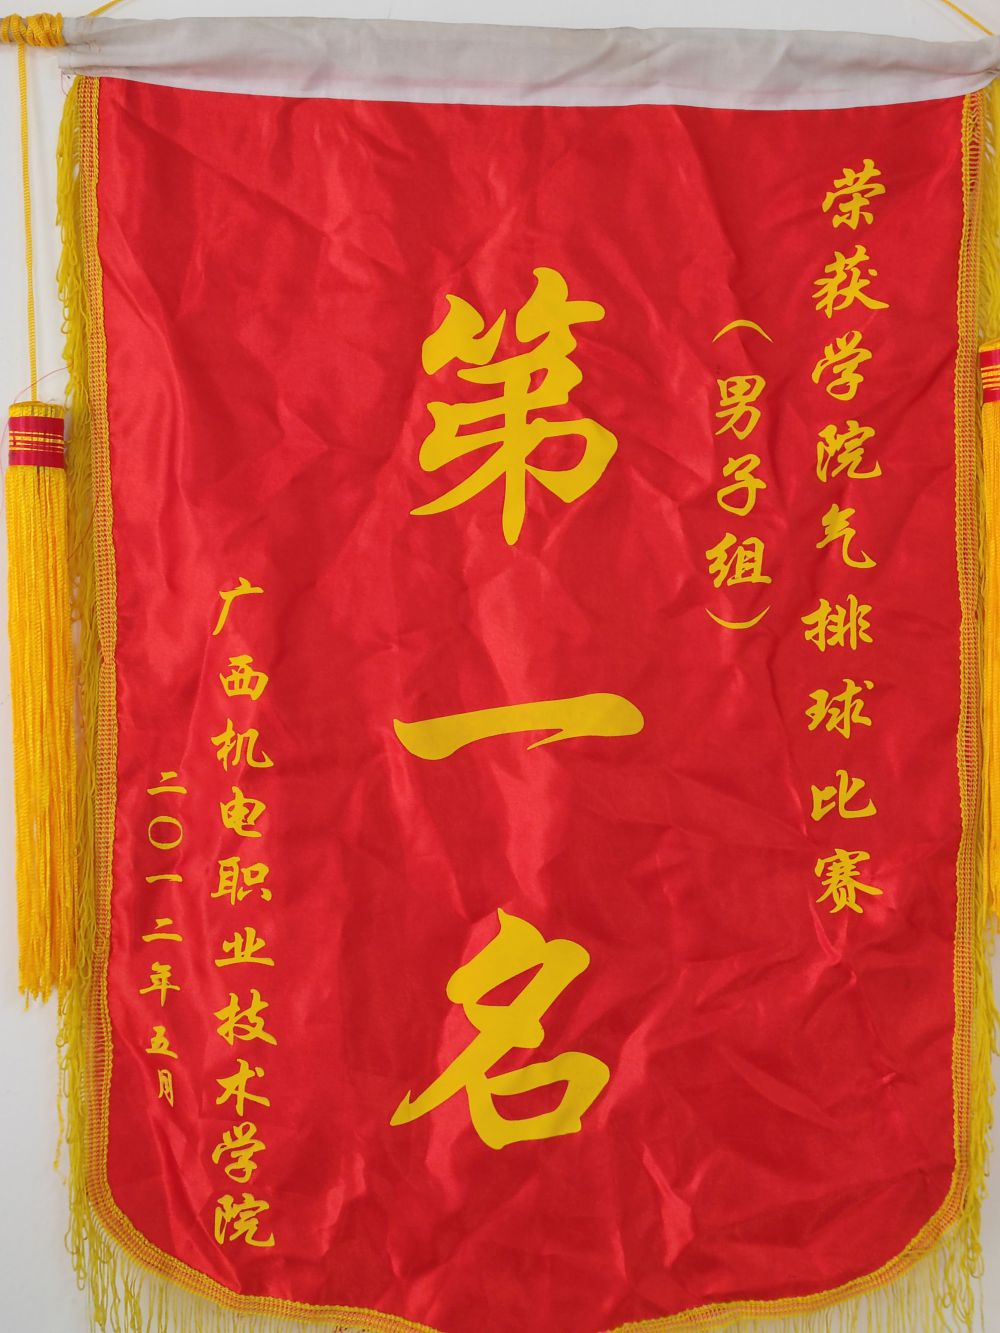 荣获学院气排球比赛
（男子组）
第一名
广西机电职业技术学院
二〇一二年五月